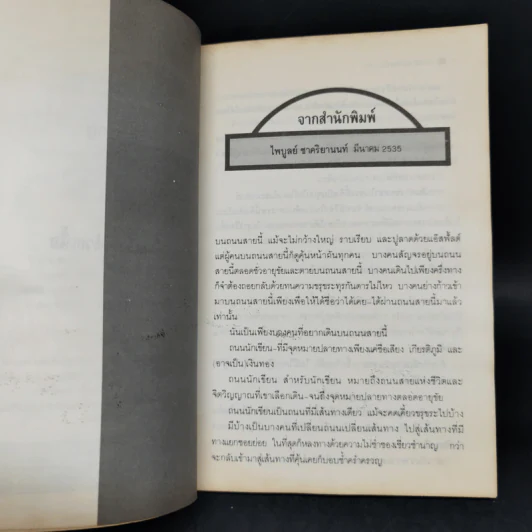 จากสำนักพิมพ์
ไพบูลย์ ชาคริยานนท์ มีนาคม 2535
บนถนนสายนี้ แม้จะไม่กว้างใหญ่ ราบเรียบ และปูลาดด้วยแอ๊สฟั้ลต์
แต่ผู้คนบนถนนสายนี้ก็ดูคุ้นหน้ากันทุกคน บางคนสัญจรอยู่บนถนน
สายนี้ตลอดชั่วอายุขัยและตายบนถนนสายนี้ บางคนเดินไปเพียงครึ่งทาง
ก็จำต้องถอยกลับด้วยทนความขรุขระทุรกันดารไม่ไหว บางคนย่างก้าวเข้า
มาบนถนนสายนี้เพียงเพื่อให้ได้ชื่อว่าได้เคย-ได้ผ่านถนนสายนี้มาแล้ว
เท่านั้น
นั่นเป็นเพียงบางคนที่อยากเดินบนถนนสายนี้
ถนนนักเขียน-ที่มีจุดหมายปลายทางเพียงแค่ชื่อเสียง เกียรติภูมิ และ
(อาจเป็น)เงินทอง
ถนนนักเขียน สำหรับนักเขียน หมายถึงถนนสายแห่งชีวิตและ
จิตวิญญาณที่เขาเลือกเดิน-จนถึงจุดหมายปลายทางตลอดอายุขัย
ถนนนักเขียนเป็นถนนที่มีเส้นทางเดียว แม้จะคดเคี้ยวขรุขระไปบ้าง
มีบ้างเป็นบางคนที่เปลี่ยนถนนเปลี่ยนเส้นทาง ไปสู่เส้นทางที่มี
ทางแยกซอยย่อย ในที่สุดก็หลงทางด้วยความไม่ช่ำของเชี่ยวชำนาญ กว่า
จะกลับเข้ามาสู่เส้นทางที่คุ้นเคยก็บอบช้ำคร่ำครวญ